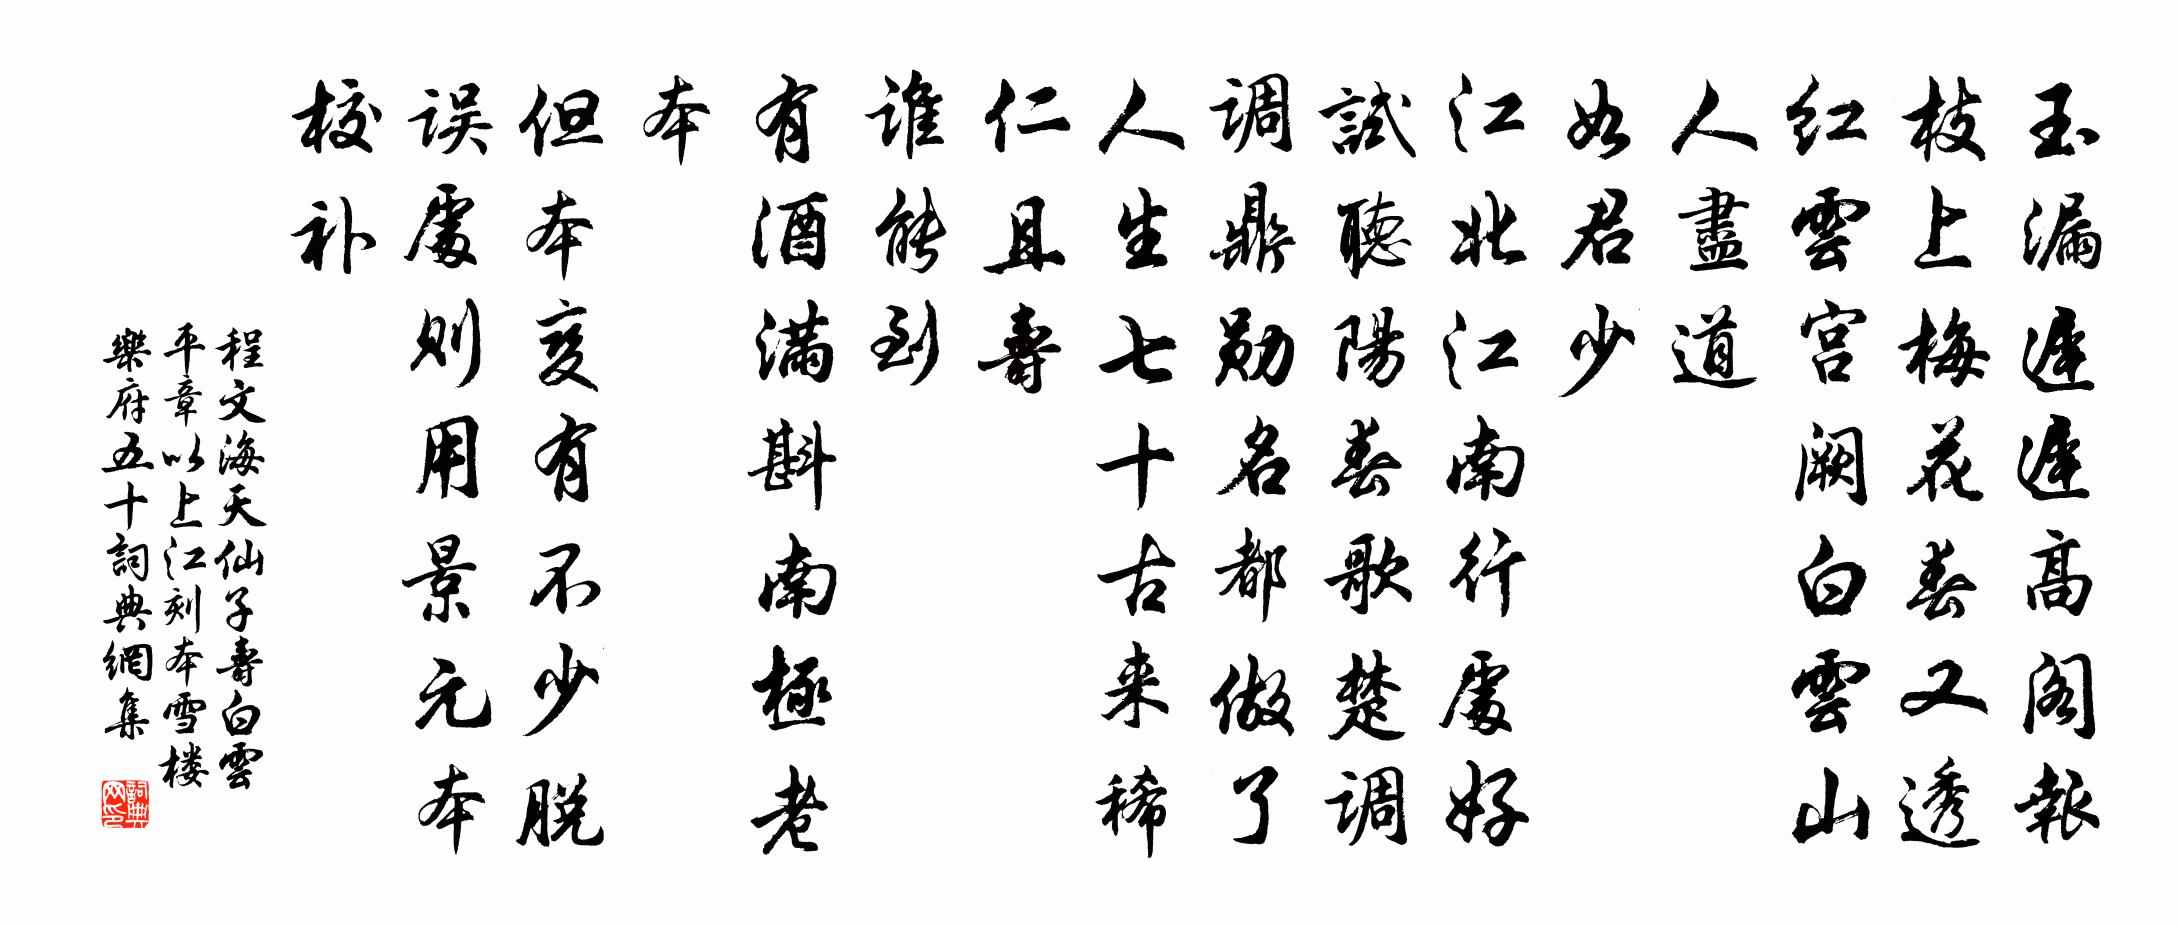 玉漏遲遲高阁報
枝上梅花春又透
红雲宫阙白雲山
人盡道
如君少
江北江南行處好
試聽陽春歌楚调
调鼎勋名都做了
人生七十古来稀
仁且壽
谁能到
有酒满斟南極老
本
但本变有不少脱
误處则用景元本
校补
程文海天仙子壽白雲
平章以上江刻本雪楼
樂府五十詞典網集
詞典
网印